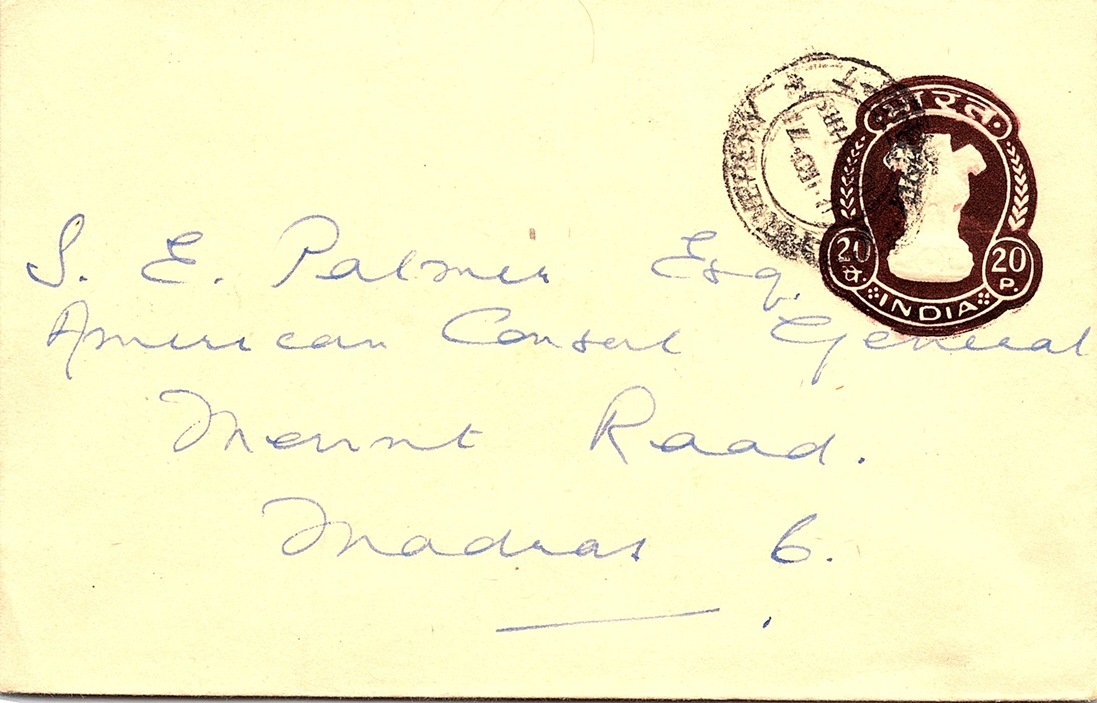 भारत
20 पै.
20 P.
INDIA
S. E. Palmer Esq.
American Consul General
Mount Road.
Madras 6.